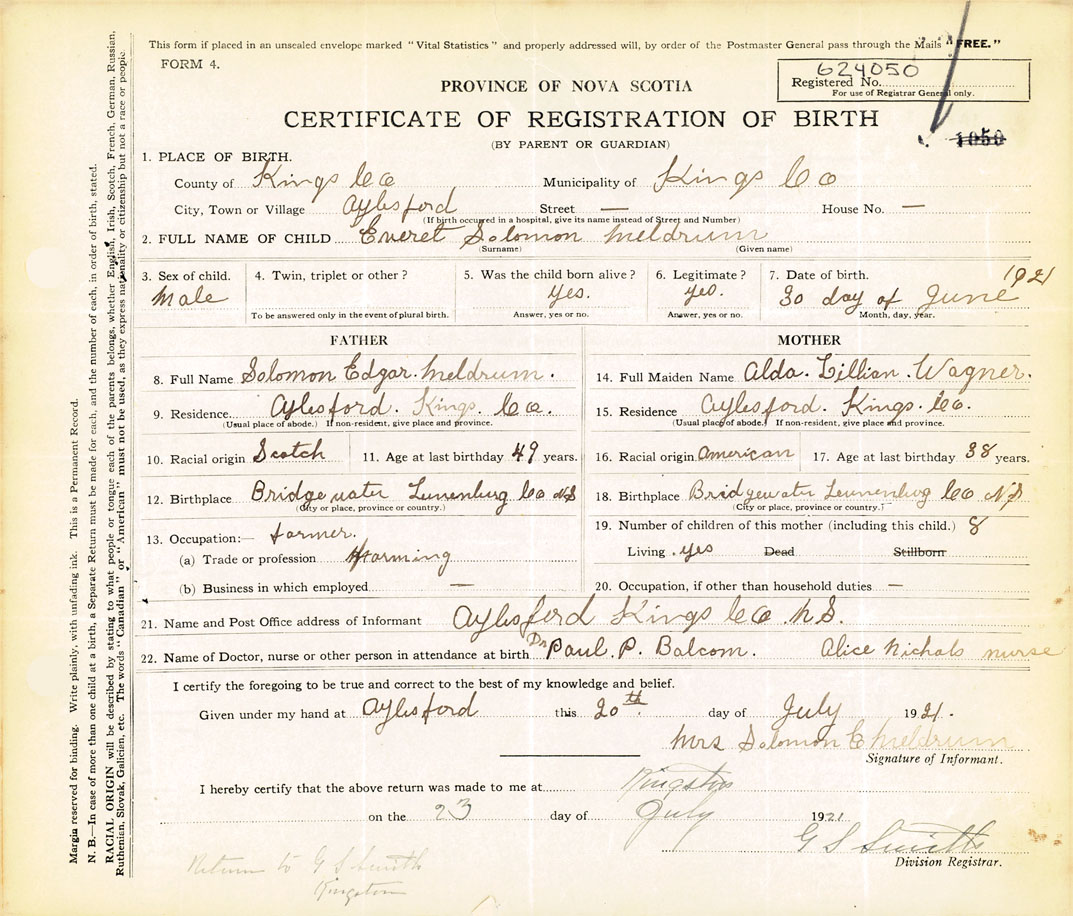 This form if placed in an unsealed envelope marked "Vital Statistics" and properly addressed will, by order of the Postmaster General pass through the Mails "FREE."
FORM 4.
624050
Registered No.
For use of Registrar General only.
PROVINCE OF NOVA SCOTIA
CERTIFICATE OF REGISTRATION OF BIRTH
(BY PARENT OR GUARDIAN)
1050
1. PLACE OF BIRTH.
County of Kings Co Municipality of Kings Co
City, Town or Village Aylesford Street — House No. —
(If birth occurred in a hospital, give its name instead of Street and Number)
2. FULL NAME OF CHILD Everet Solomon Meldrum
(Surname) (Given name)
3. Sex of child. 4. Twin, triplet or other? 5. Was the child born alive? 6. Legitimate? 7. Date of birth. 1921
Male Yes. yes. 30 day of June
To be answered only in the event of plural birth. Answer, yes or no. Answer, yes or no. Month, day, year.
FATHER MOTHER
8. Full Name Solomon Edgar Meldrum. 14. Full Maiden Name Alda. Lillian. Wagner.
9. Residence Aylesford. Kings. Co. 15. Residence Aylesford. Kings. Co.
(Usual place of abode.) If non-resident, give place and province. (Usual place of abode.) If non-resident, give place and province.
10. Racial origin Scotch 11. Age at last birthday 49 years. 16. Racial origin American 17. Age at last birthday 38 years.
12. Birthplace Bridgewater Lunenburg Co NS 18. Birthplace Bridgewater Lunenburg Co NS
(City or place, province or country.) (City or place, province or country.)
13. Occupation:— farmer. 19. Number of children of this mother (including this child.) 8
(a) Trade or profession farming Living yes Dead Stillborn
(b) Business in which employed — 20. Occupation, if other than household duties —
21. Name and Post Office address of Informant Aylesford Kings Co N.S.
22. Name of Doctor, nurse or other person in attendance at birth Dr Paul. P. Balcom. Alice Nichols nurse
I certify the foregoing to be true and correct to the best of my knowledge and belief.
Given under my hand at Aylesford this 20th day of July 1921.
Mrs Solomon E Meldrum
Signature of Informant.
I hereby certify that the above return was made to me at Kingston
on the 23 day of July 1921
G S Smith
Division Registrar.
Return to G S Smith
Kingston
Margin reserved for binding. Write plainly, with unfading ink. This is a Permanent Record.
N. B.—In case of more than one child at a birth, a Separate Return must be made for each, and the number of each, in order of birth, stated.
RACIAL ORIGIN will be described by stating to what people or tongue each of the parents belongs, whether English, Irish, Scotch, French, German, Russian,
Ruthenian, Slovak, Galician, etc. The words "Canadian" or "American" must not be used, as they express nationality or citizenship but not a race or people.